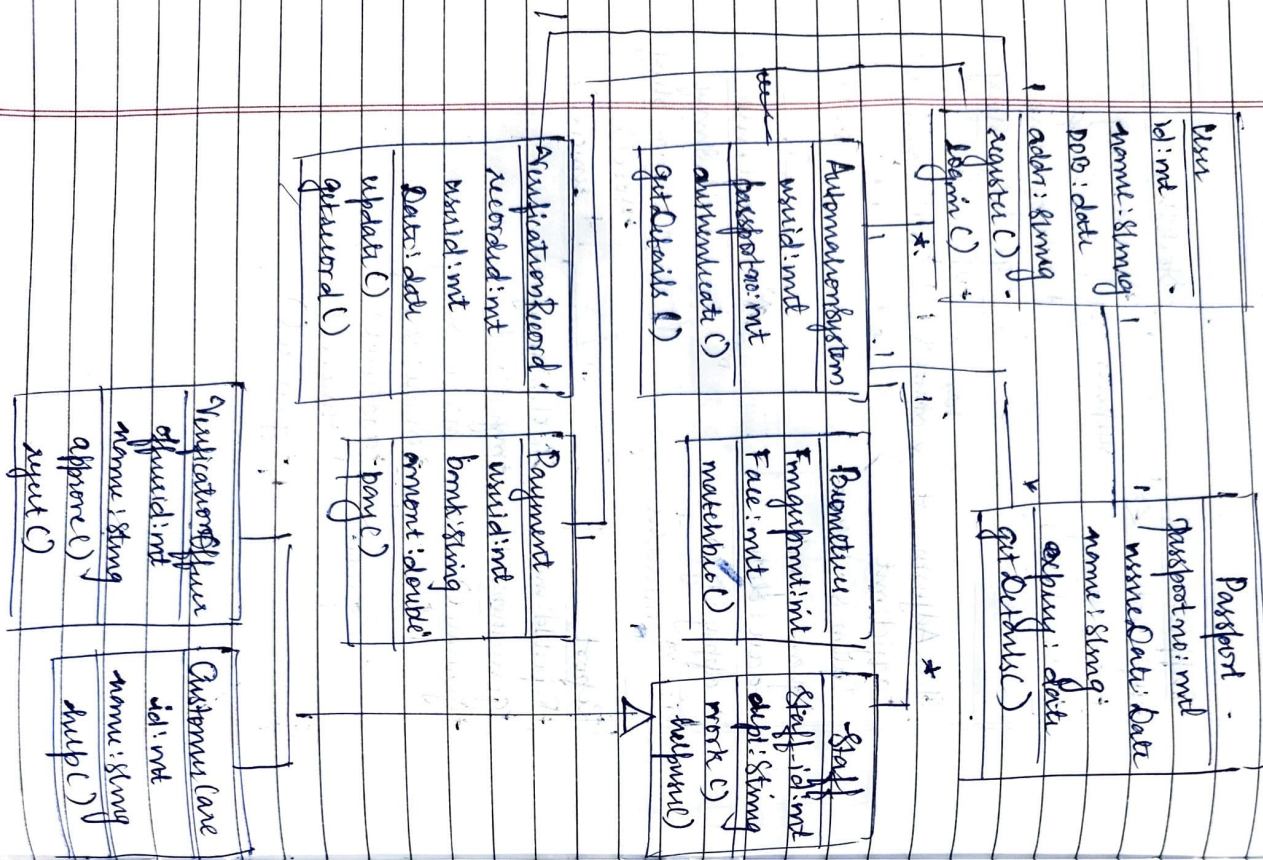 User
id:int
name:string
DOB:date
addr:string
register()
login()
1
1
1
Passport
Passport no:int
issueDate:Date
name:string
expiry:date
getDetails()
*
1
1
1
*
*
AutomationSystem
userid:int
passport no:int
authenticate()
getDetails()
Biometrics
Fingerprint:int
Face:int
matchbio()
Staff
Staff-id:int
dept:string
work()
helpuser()
1
1
VerificationRecord
recordid:int
userid:int
Date:date
update()
getrecord()
Payment
userid:int
bank:string
amount:double
pay()
VerificationOfficer
officerid:int
name:string
approve()
reject()
CustomerCare
id:int
name:string
help()